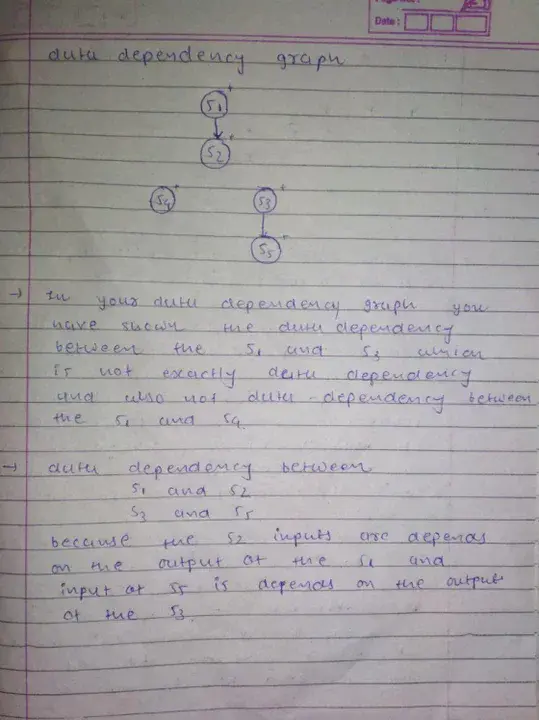 Date:
data dependency graph
S1 +
S2 +
S4 + S3 +
S5 +
→ In your data dependency graph you
have shown the data dependency
between the S1 and S3 which
is not exactly data dependency
and also not data-dependency between
the S1 and S4.
→ data dependency between
S1 and S2
S3 and S5
because the S2 inputs are depends
on the output of the S1 and
input of S5 is depends on the output
of the S3.